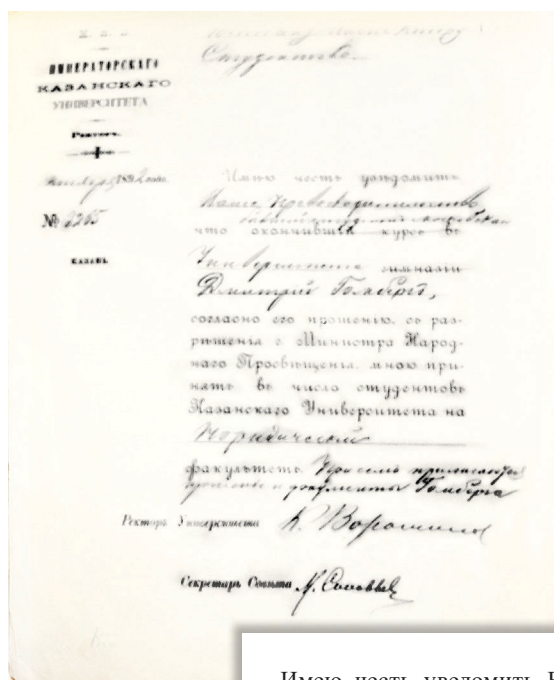 ИМПЕРАТОРСКАГО
КАЗАНСКАГО
УНИВЕРСИТЕТА
Ректоръ.
1892 года
№ 2265
КАЗАНЬ
Студентовъ.
Имѣю честь увѣдомить
Ваше Превосходительство,
бывшій студентъ Московскаго
что окончившій курсъ въ
Университета гимназіи
Дмитрій Гольберг,
согласно его прошенію, съ раз-
рѣшенія г. Министра Народ-
наго Просвѣщенія, мною при-
нятъ въ число студентовъ
Казанскаго Университета на
Юридическій
факультетъ. При семъ прилагаются
прошенье и документы
Ректоръ Университета К. Ворошиловъ
Секретарь Совѣта Н. Соловьевъ
Имею честь уведомить